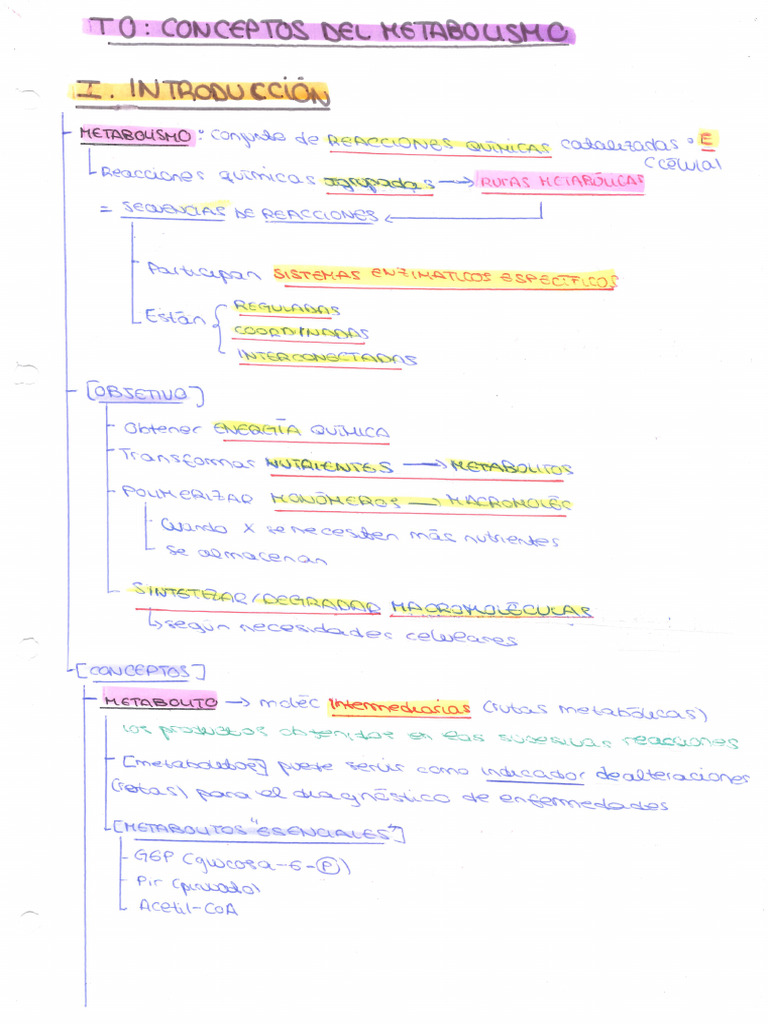 T0: CONCEPTOS DEL METABOLISMO
I. INTRODUCCIÓN
METABOLISMO: conjunto de REACCIONES QUÍMICAS catalizadas • E
Reacciones químicas agrupadas → RUTAS METABÓLICAS
(célula)
= SECUENCIAS DE REACCIONES
Participan SISTEMAS ENZIMATICOS ESPECÍFICOS
Están { REGULADAS
COORDINADAS
INTERCONECTADAS
[OBJETIVO]
Obtener ENERGÍA QUÍMICA
Transformar NUTRIENTES → METABOLITOS
POLIMERIZAR MONÓMEROS → MACROMOLÉC
Cuando x se necesiten más nutrientes
se almacenan
SINTETIZAR/DEGRADAR MACROMOLÉCULAS
según necesidades celulares
[CONCEPTOS]
METABOLITO → moléc intermediarias (rutas metabólicas)
los productos obtenidos en las sucesivas reacciones
[metabolitos] puede servir como indicador de alteraciones
(rutas) para el diagnóstico de enfermedades
[METABOLITOS "ESENCIALES"]
G6P (glucosa-6-P)
Pir (piruvato)
Acetil-CoA